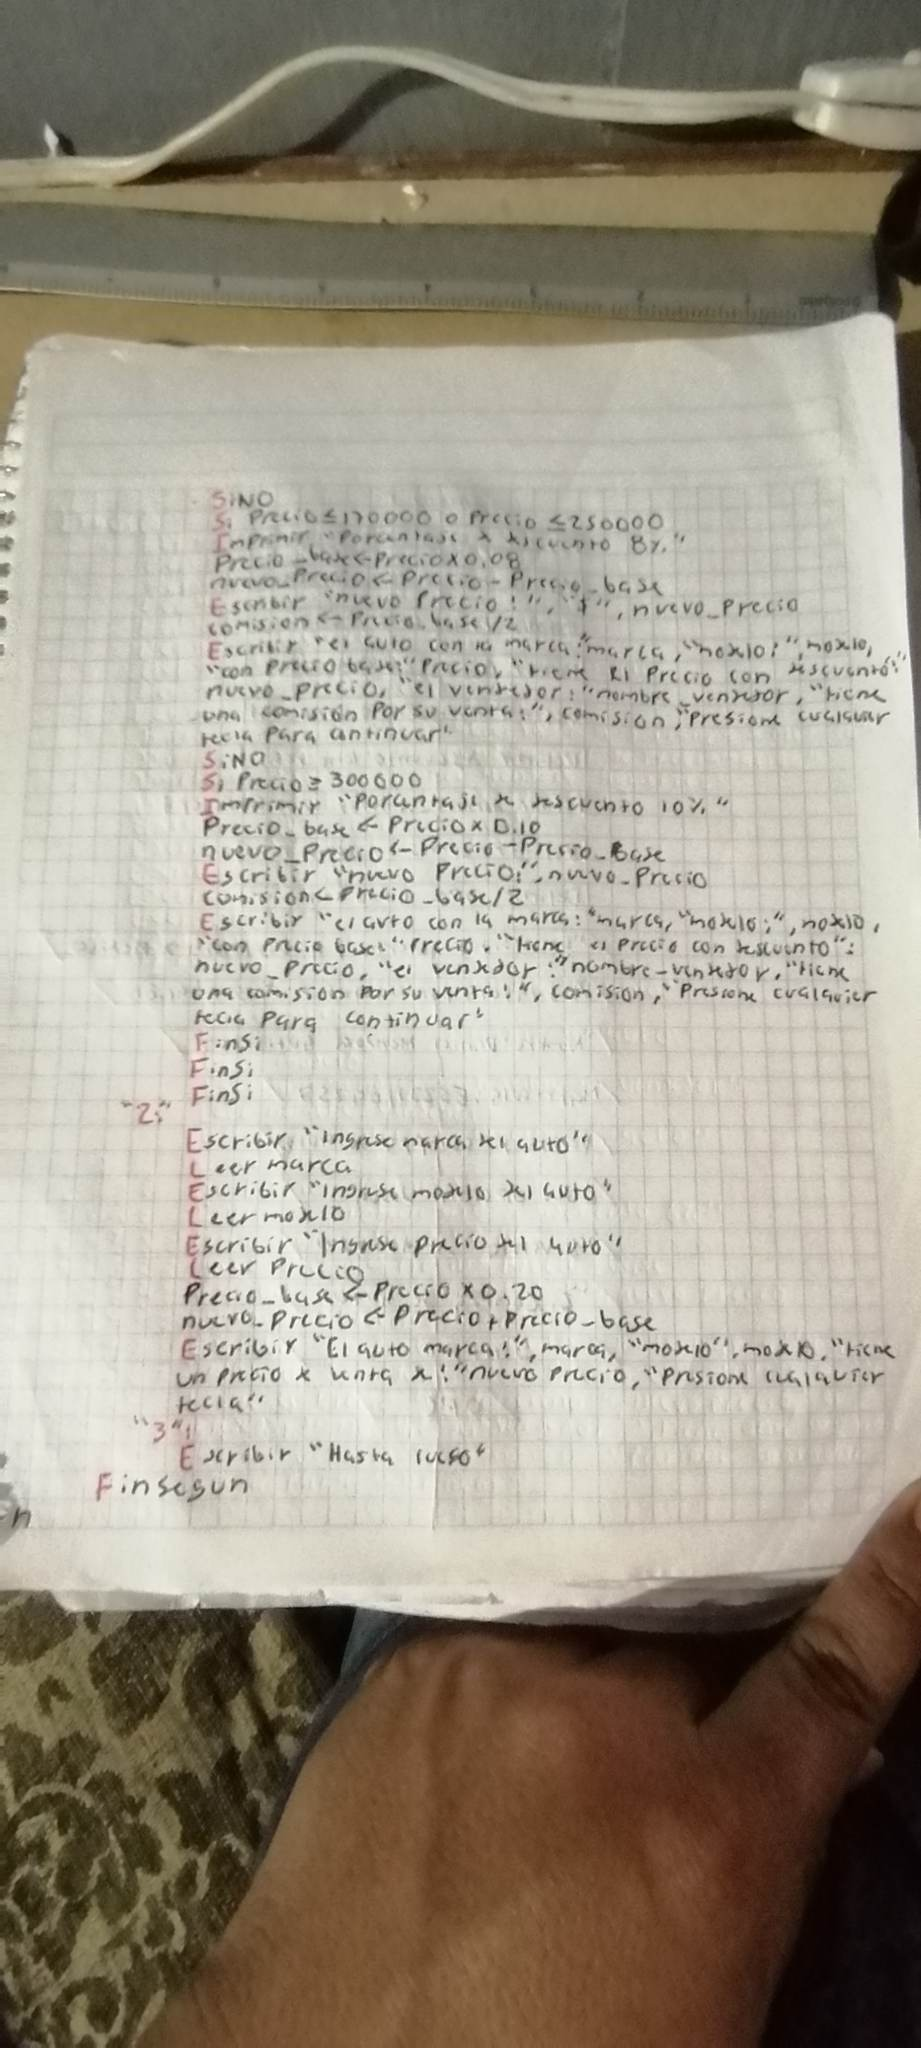 SiNO
Si Precio ≤ 170000 o Precio ≤ 250000
Imprimir "Porcentaje de descuento 8%."
Precio_base <- Precio x 0.08
nuevo_Precio <- Precio - Precio_base
Escribir "nuevo Precio:", "$", nuevo_Precio
comision <- Precio_base/2
Escribir "el auto con la marca:" marca, "modelo:", modelo,
"con Precio base:" Precio, "tiene El Precio con descuento:"
nuevo_precio, "el vendedor:" nombre_vendedor, "tiene
una comisión Por su venta:", comision, "Presione cualquier
tecla Para continuar"
SiNO
Si Precio ≥ 300000
Imprimir "Porcentaje de descuento 10%"
Precio_base <- Precio x 0.10
nuevo_Precio <- Precio - Precio_Base
Escribir "nuevo Precio:", nuevo_Precio
comision <- Precio_base/2
Escribir "el auto con la marca:" marca, "modelo:", modelo,
"con Precio base:" Precio, "tiene el Precio con descuento":
nuevo_Precio, "el vendedor:" nombre-vendedor, "tiene
una comisión Por su venta:", comision, "Presione cualquier
tecla Para continuar"
FinSi
FinSi
FinSi
"2:"
Escribir "Ingrese marca del auto"
Leer marca
Escribir "Ingrese modelo del auto"
Leer modelo
Escribir "Ingrese precio del auto"
Leer Precio
Precio_base <- Precio x 0.20
nuevo_Precio <- Precio + Precio_base
Escribir "El auto marca:", marca, "modelo", modelo, "tiene
un precio de venta de:" nuevo Precio, "Presione cualquier
tecla"
"3":
Escribir "Hasta luego"
Finsegun
n